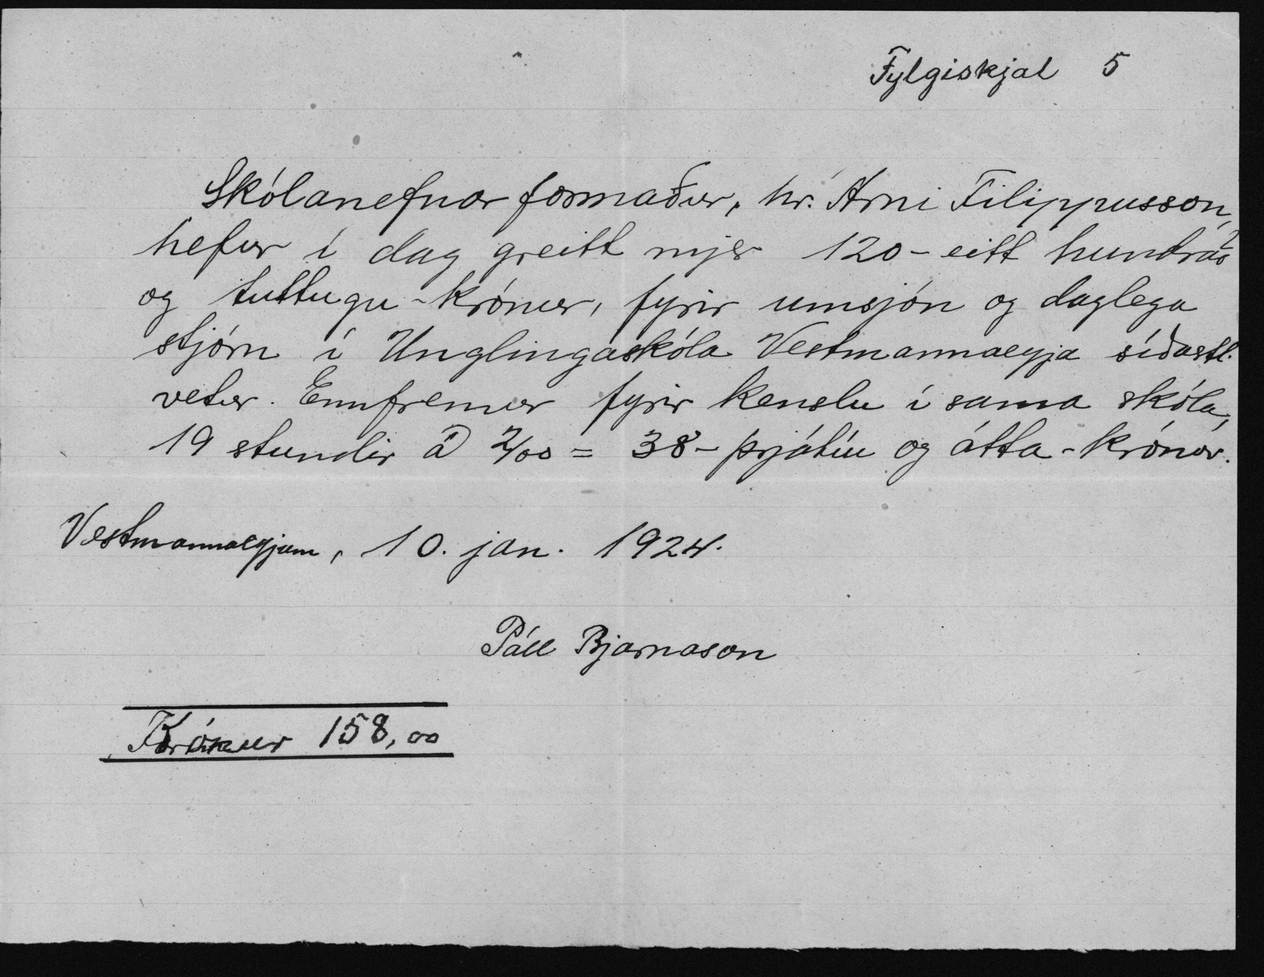 Fylgiskjal 5
Skólanefnar formaður, hr. Árni Filippusson,
hefur í dag greitt mjer 120 - eitt hundrað
og tuttugu - krónur, fyrir umsjón og daglega
stjórn í Unglingaskóla Vestmannaeyja síðastl.
vetur. Ennfremur fyrir kenslu í sama skóla,
19 stundir á 2/00 = 38 - þrjátíu og átta - krónur.
Vestmannaeyjum, 10. jan. 1924.
Páll Bjarnason
Krónur 158,00